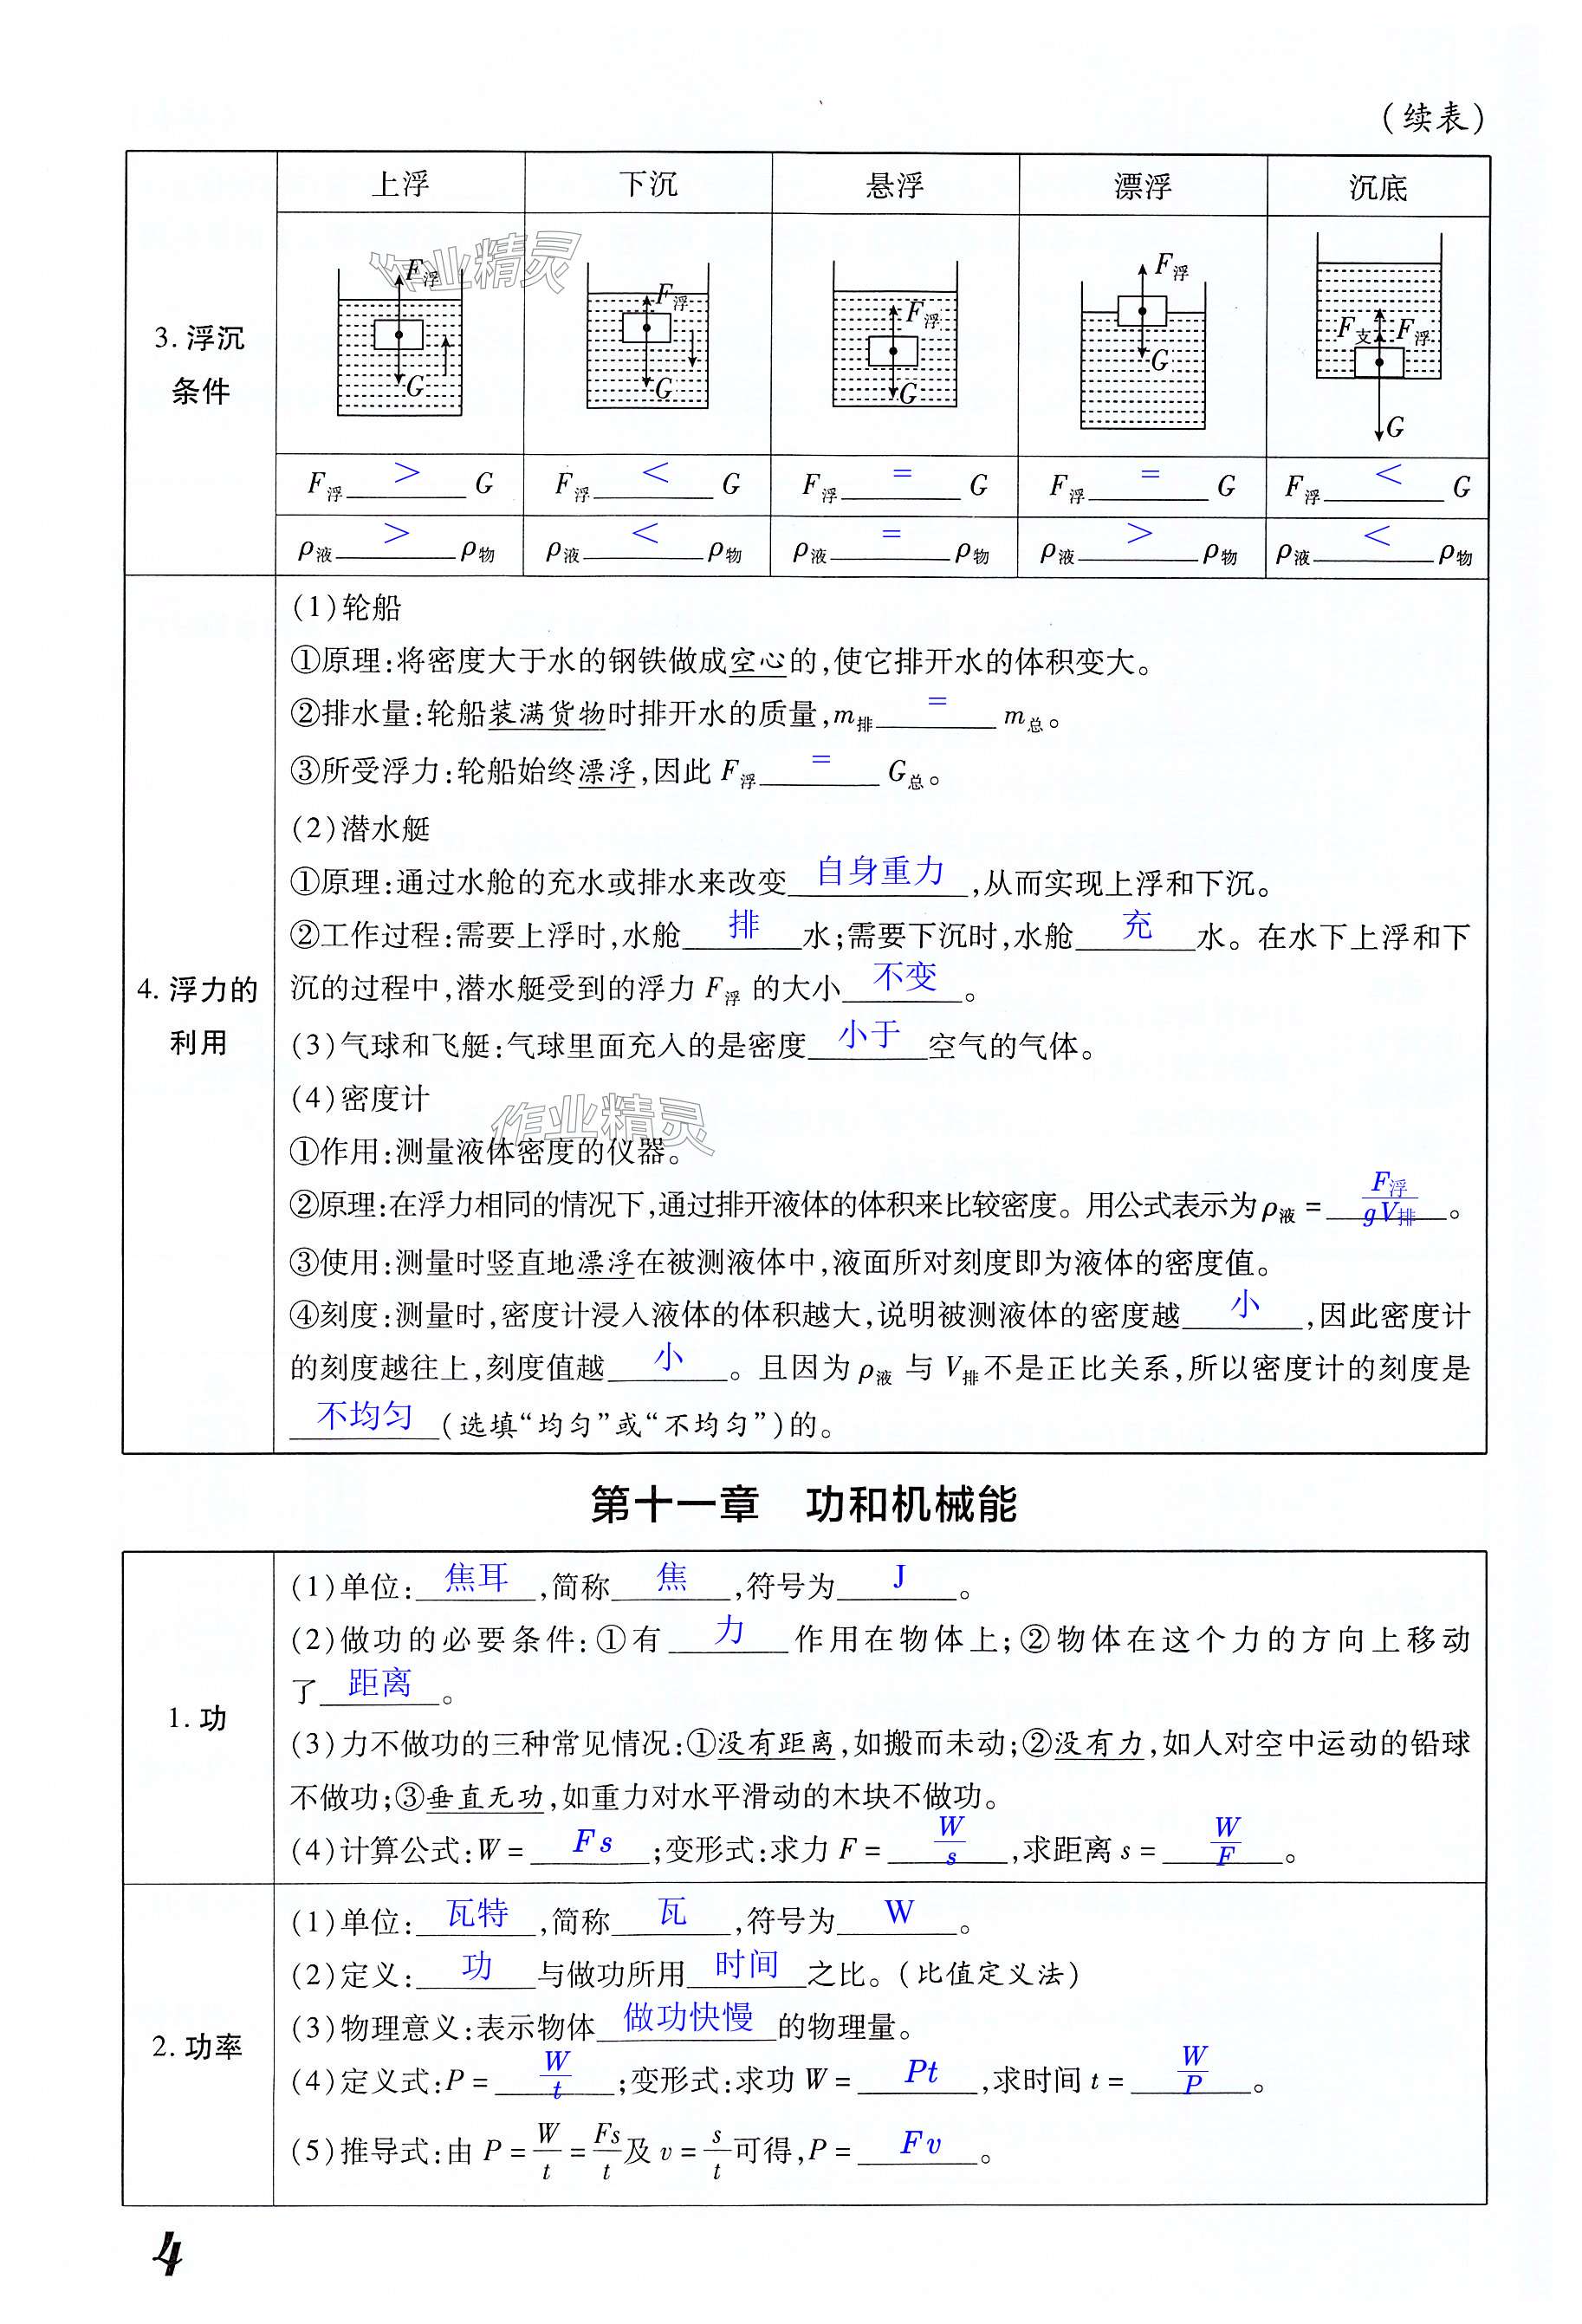 (续表)
3. 浮沉条件
上浮 下沉 悬浮 漂浮 沉底
F浮 G
F浮 G
F浮 G
F浮 G
F支 F浮 G
F浮 > G F浮 < G F浮 = G F浮 = G F浮 < G
ρ液 > ρ物 ρ液 < ρ物 ρ液 = ρ物 ρ液 > ρ物 ρ液 < ρ物
4. 浮力的利用
(1)轮船
①原理:将密度大于水的钢铁做成空心的,使它排开水的体积变大。
②排水量:轮船装满货物时排开水的质量,m排 = m总。
③所受浮力:轮船始终漂浮,因此 F浮 = G总。
(2)潜水艇
①原理:通过水舱的充水或排水来改变 自身重力 ,从而实现上浮和下沉。
②工作过程:需要上浮时,水舱 排 水;需要下沉时,水舱 充 水。在水下上浮和下
沉的过程中,潜水艇受到的浮力 F浮 的大小 不变 。
(3)气球和飞艇:气球里面充入的是密度 小于 空气的气体。
(4)密度计
①作用:测量液体密度的仪器。
②原理:在浮力相同的情况下,通过排开液体的体积来比较密度。用公式表示为ρ液 = F浮/gV排 。
③使用:测量时竖直地漂浮在被测液体中,液面所对刻度即为液体的密度值。
④刻度:测量时,密度计浸入液体的体积越大,说明被测液体的密度越 小 ,因此密度计
的刻度越往上,刻度值越 小 。且因为ρ液 与 V排不是正比关系,所以密度计的刻度是
不均匀 (选填“均匀”或“不均匀”)的。
作业精灵
作业精灵
第十一章 功和机械能
1. 功
(1)单位: 焦耳 ,简称 焦 ,符号为 J 。
(2)做功的必要条件:①有 力 作用在物体上;②物体在这个力的方向上移动
了 距离 。
(3)力不做功的三种常见情况:①没有距离,如搬而未动;②没有力,如人对空中运动的铅球
不做功;③垂直无功,如重力对水平滑动的木块不做功。
(4)计算公式:W = Fs ;变形式:求力 F = W/s ,求距离 s = W/F 。
2. 功率
(1)单位: 瓦特 ,简称 瓦 ,符号为 W 。
(2)定义: 功 与做功所用 时间 之比。(比值定义法)
(3)物理意义:表示物体 做功快慢 的物理量。
(4)定义式:P = W/t ;变形式:求功 W = Pt ,求时间 t = W/P 。
(5)推导式:由 P = W/t = Fs/t 及 v = s/t 可得,P = Fv 。
4